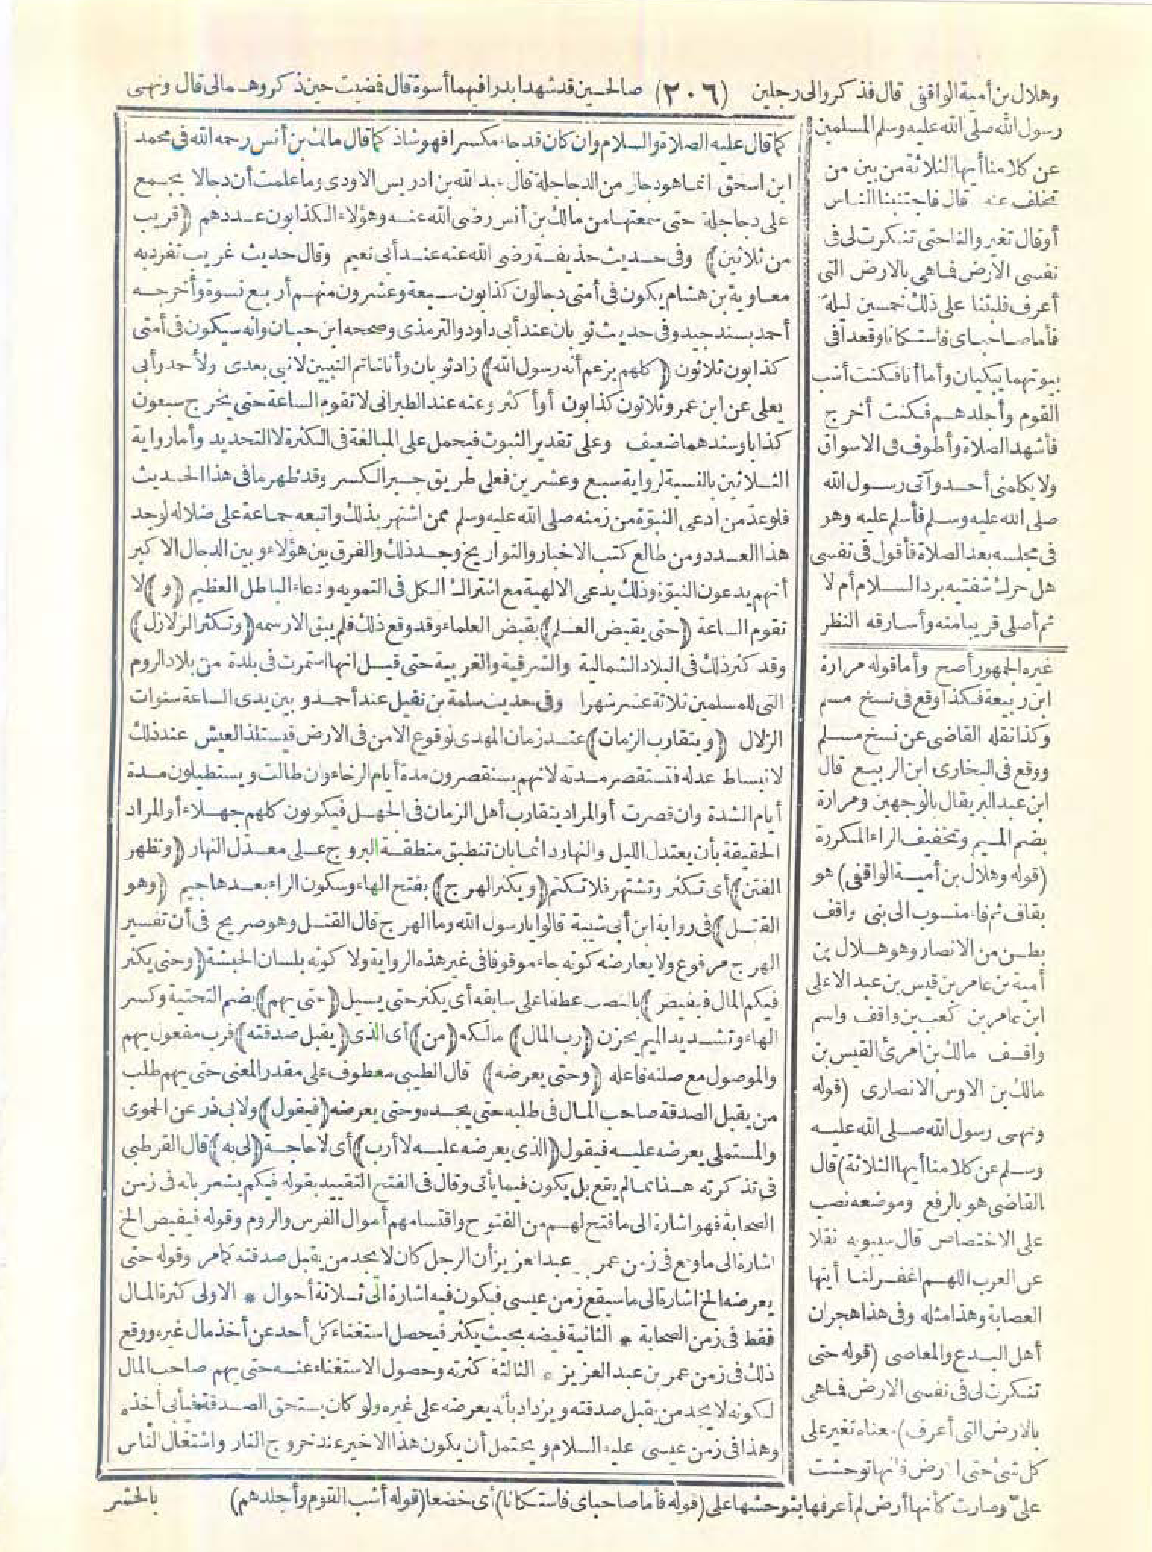 وهلال بن أمية الواقفى قال فذكروا لى رجلين (٢٠٦) صالحين قد شهدا بدرا فيهما أسوة قال فمضيت حين ذكروهما لى قال ونهى
رسول الله صلى الله عليه وسلم المسلمين
عن كلامنا أيها الثلاثة من بين من
تخلف عنه قال فاجتنبنا الناس
أو قال تغيروا لنا حتى تنكرت لى فى
نفسى الارض فاهى بالارض التى
أعرف فلبثنا على ذلك خمسين ليلة
فأما صاحباى فاستكانا وقعدا فى
بيوتهما يبكيان وأما أنا فكنت أشب
القوم وأجلدهم فكنت أخرج
فأشهد الصلاة وأطوف فى الاسواق
ولا يكلمنى أحد وآتى رسول الله
صلى الله عليه وسلم فأسلم عليه وهو
فى مجلسه بعد الصلاة فأقول فى نفسى
هل حرك شفتيه برد السلام أم لا
ثم أصلى قريبا منه وأسارقه النظر
غيره الجمهور أصح وأما قوله مرارة
ابن ربيعة فكذا وقع فى نسخ مسلم
وكذا نقله القاضى عن نسخ مسلم
ووقع فى البخارى ابن الربيع قال
ابن عبد البر يقال بالوجهين ومرارة
بضم الميم وتخفيف الراء المكررة
(قوله وهلال بن أمية الواقفى) هو
بقاف ثم فاء منسوب الى بنى واقف
بطن من الانصار وهو هلال بن
أمية بن عامر بن قيس بن عبد الاعلى
ابن عامر بن كعب بن واقف واسم
واقف مالك بن امرئ القيس بن
مالك بن الاوس الانصارى (قوله
ونهى رسول الله صلى الله عليه
وسلم عن كلامنا أيها الثلاثة) قال
القاضى هو بالرفع وموضعه نصب
على الاختصاص قال سيبويه نقلا
عن العرب اللهم اغفر لنا أيتها
العصابة وهذا مثله وفى هذا هجران
أهل البدع والمعاصى (قوله حتى
تنكرت لى فى نفسى الارض فاهى
بالارض التى أعرف) معناه تغير على
كل شئ حتى الارض فانها توحشت
علىّ وصارت كأنها أرض لم أعرفها لتوحشها على (قوله فأما صاحباى فاستكانا) أى خضعا (قوله أشب القوم وأجلدهم)
كما قال عليه الصلاة والسلام وان كان قد جاء مكسرا فهو شاذ كما قال مالك بن أنس رحمه الله فى محمد
ابن اسحق انما هو دجال من الدجاجلة قال عبد الله بن ادريس الاودى وما علمت أن دجالا يجمع
على دجاجلة حتى سمعتها من مالك بن أنس رضى الله عنه وهؤلاء الكذابون عددهم (قريب
من ثلاثين) وفى حديث حذيفة رضى الله عنه عند أبى نعيم وقال حديث غريب تفرد به
معاوية بن هشام يكون فى أمتى دجالون كذابون سبعة وعشرون منهم أربع نسوة وأخرجه
أحمد بسند جيد وفى حديث ثوبان عند أبى داود والترمذى وصححه ابن حبان وانه سيكون فى أمتى
كذابون ثلاثون (كلهم يزعم أنه رسول الله) زاد ثوبان وأنا خاتم النبيين لا نبى بعدى ولاحمد وأبى
يعلى عن ابن عمر وثلاثون كذابون أو أكثر وعنه عند الطبرانى لا تقوم الساعة حتى يخرج سبعون
كذابا وسندهما ضعيف وعلى تقدير الثبوت فيحمل على المبالغة فى الكثرة لا التحديد وأما رواية
الثلاثين بالنسبة لرواية سبع وعشرين فعلى طريق جبر الكسر وقد ظهر ما فى هذا الحديث
فلو عدّ من ادعى النبوّة من زمنه صلى الله عليه وسلم ممن اشتهر بذلك واتبعه جماعة على ضلاله لوجد
هذا العدد ومن طالع كتب الاخبار والتواريخ وجد ذلك والفرق بين هؤلاء وبين الدجال الاكبر
أنهم يدعون النبوّة وذلك يدعى الالهية مع اشتراك الكل فى التمويه وادعاء الباطل العظيم (و) لا
تقوم الساعة (حتى يقبض العلم) بقبض العلماء وقد وقع ذلك فلم يبق الا رسمه (وتكثر الزلازل)
وقد كثر ذلك فى البلاد الشمالية والشرقية والغربية حتى قيل انها استمرت فى بلدة من بلاد الروم
التى للمسلمين ثلاثة عشر شهرا وفى حديث سلمة بن نفيل عند أحمد وبين يدى الساعة سنوات
الزلازل (ويتقارب الزمان) عند زمان المهدى لوقوع الامن فى الارض فيستلذ العيش عند ذلك
لانبساط عدله فتستقصر مدته لانهم يستقصرون مدة أيام الرخاء وان طالت ويستطيلون مدة
أيام الشدة وان قصرت أو المراد يتقارب أهل الزمان فى الجهل فيكونون كلهم جهلاء أو المراد
الحقيقة بأن يعتدل الليل والنهار دائما بأن تنطبق منطقة البروج على معدّل النهار (وتظهر
الفتن) أى تكثر وتشتهر فلا تكتم (ويكثر الهرج) بفتح الهاء وسكون الراء بعدها جيم (وهو
القتل) فى رواية ابن أبى شيبة قالوا يا رسول الله وما الهرج قال القتل وهو صريح فى أن تفسير
الهرج مرفوع ولا يعارضه كونه جاء موقوفا فى غير هذه الرواية ولا كونه بلسان الحبشة (وحتى يكثر
فيكم المال فيفيض) بالنصب عطفا على سابقه أى يكثر حتى يسيل (حتى يهم) بضم التحتية وكسر
الهاء وتشديد الميم يحزن (رب المال) مالكه (من) أى الذى (يقبل صدقته) فرب مفعول يهم
والموصول مع صلته فاعله (وحتى يعرضه) قال الطيبى معطوف على مقدر المعنى حتى يهم طلب
من يقبل الصدقة صاحب المال فى طلبه حتى يجده وحتى يعرضه (فيقول) ولابى ذر عن الحموى
والمستملى يعرضه عليه فيقول (الذى يعرضه عليه لا أرب) أى لا حاجة (لى به) قال القرطبى
فى تذكرته هذا مما لم يقع بل يكون فيما يأتى وقال فى الفتح التقييد بقوله فيكم يشعر بانه فى زمن
الصحابة فهو اشارة الى ما فتح لهم من الفتوح واقتسامهم أموال الفرس والروم وقوله فيفيض الخ
اشارة الى ما وقع فى زمن عمر بن عبد العزيز أن الرجل كان لا يجد من يقبل صدقته كما مر وقوله حتى
يعرضه الخ اشارة الى ما سيقع زمن عيسى فيكون فيه اشارة الى ثلاثة أحوال * الاولى كثرة المال
فقط فى زمن الصحابة * الثانية فيضه بحيث يكثر فيحصل استغناء كل أحد عن أخذ مال غيره ووقع
ذلك فى زمن عمر بن عبد العزيز * الثالثة كثرته وحصول الاستغناء عنه حتى يهم صاحب المال
لكونه لا يجد من يقبل صدقته ويزداد بأنه يعرضه على غيره ولو كان يستحق الصدقة فيأبى أخذه
وهذا فى زمن عيسى عليه السلام ويحتمل أن يكون هذا الاخير عند خروج النار واشتغال الناس
بالحشر